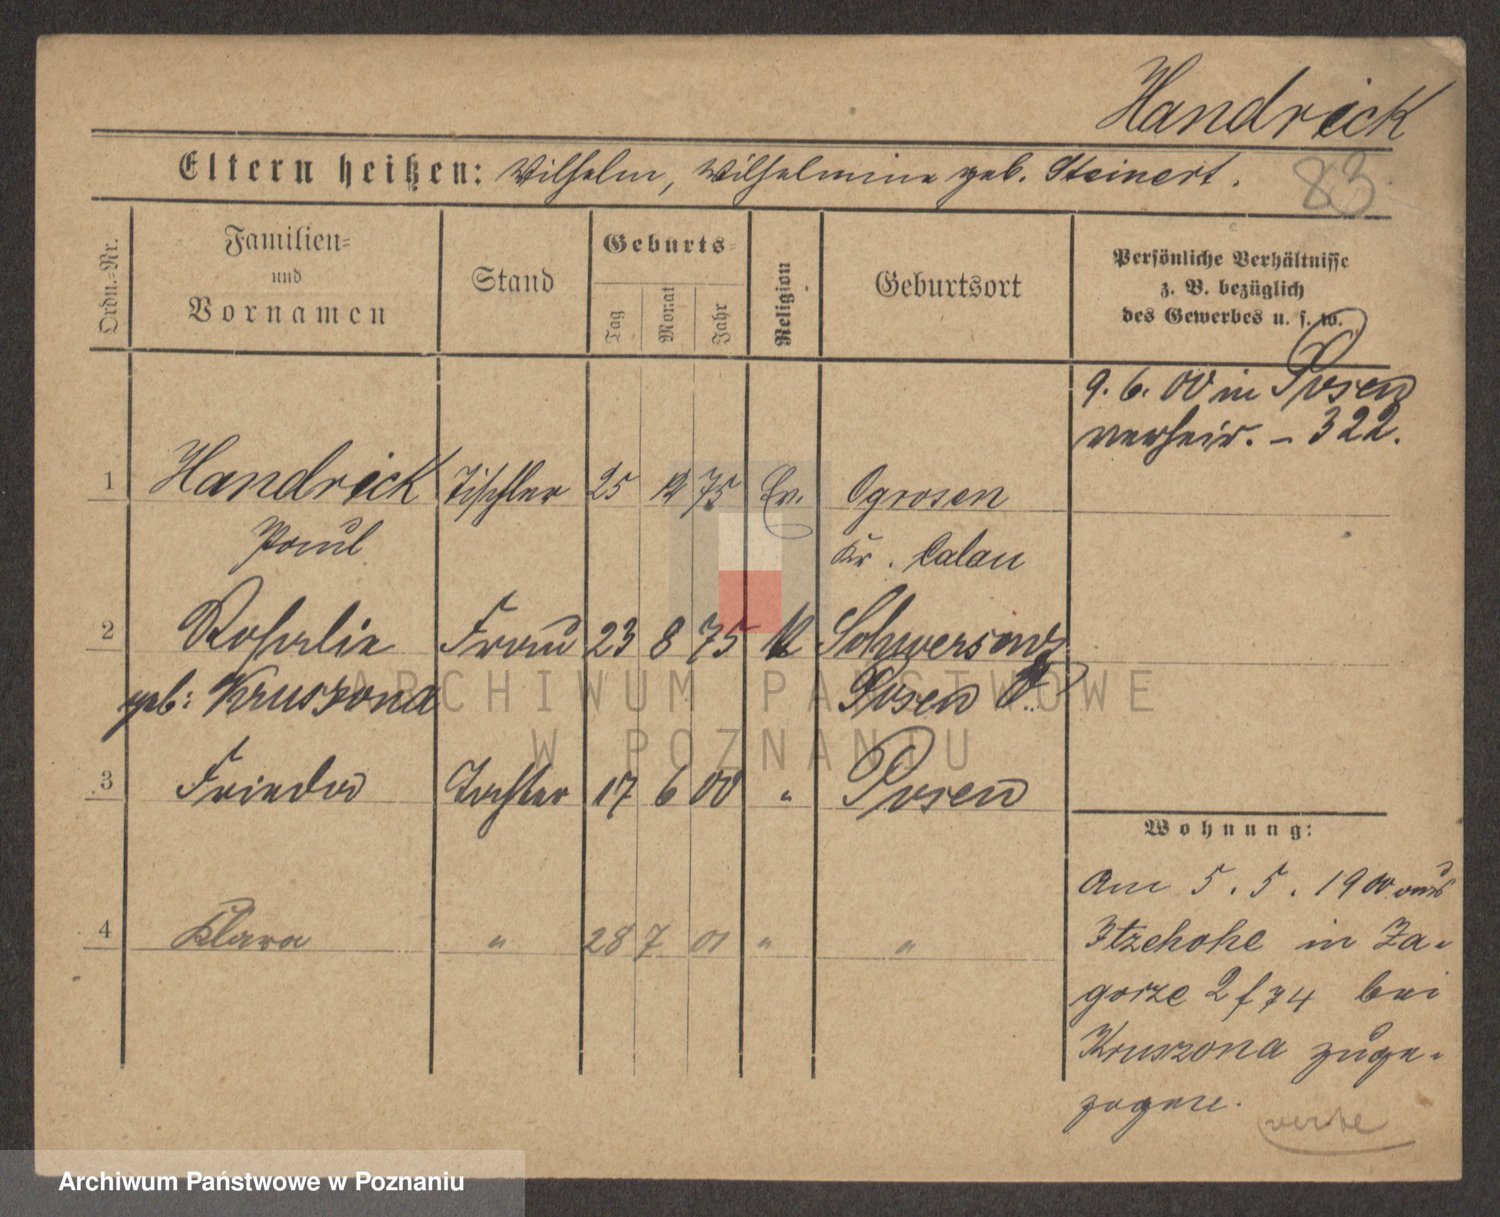 Handrick
Eltern heißen: Wilhelm, Wilhelmine geb. Steinert.
83
Ordn.-Nr.
Familien- und Vornamen
Stand
Geburts-
Tag
Monat
Jahr
Religion
Geburtsort
Persönliche Verhältnisse
z. B. bezüglich
des Gewerbes u. s. w.
9. 6. 00 in Posen
verheir. – 322.
1 Handrick Tischler 25 12 75 Ev. Ogrosen
Paul Kr. Calau
2 Rosalie Frau 23 8 75 K Schwersenz
geb: Kruszona Posen O.
3 Frieda Tochter 17 6 00 " Posen
Wohnung:
Am 5. 5. 1900 aus
4 Klara " 28 7 01 " "
Itzehohe in Za-
gorze 2 f 74 bei
Kruszona zuge-
zogen.
ARCHIWUM PAŃSTWOWE
W POZNANIU
Archiwum Państwowe w Poznaniu